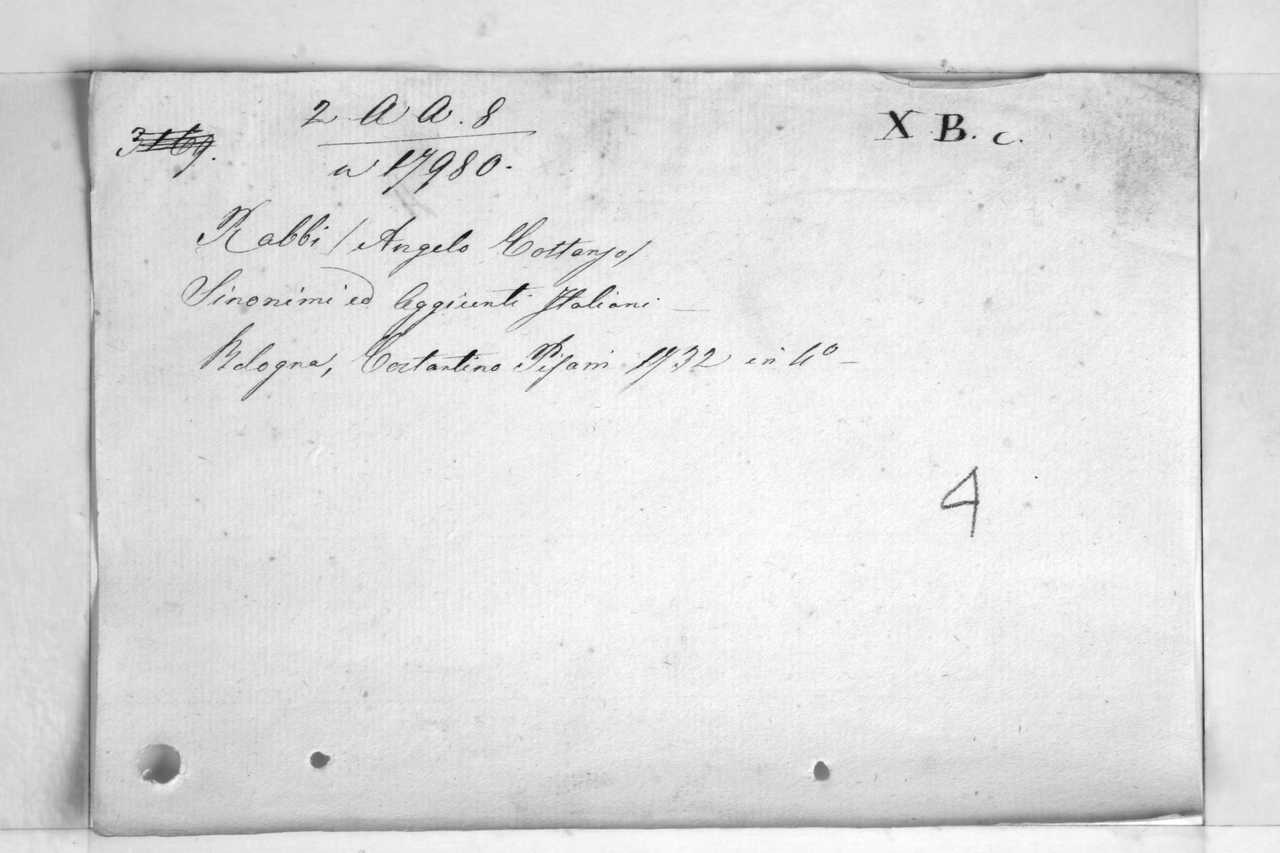 2 A A. 8
X B. c.
3169.
a 17980.
Rabbi / Angelo Costanzo /
Sinonimi ed Aggiunti Italiani —
Bologna, Costantino Pisarri 1732 in 4° —
4